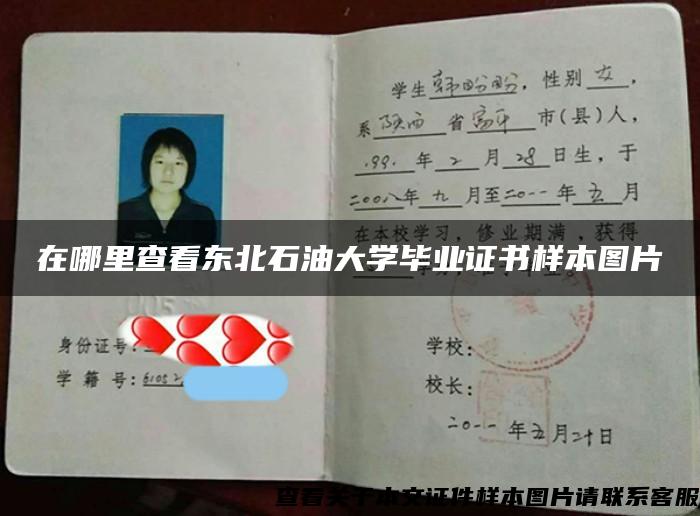 学生韩盼盼，性别女，
系陕西省富平市(县)人，
199.年2月28日生，于
二00八年九月至二0一一年五月
在本校学习，修业期满，获得
在哪里查看东北石油大学毕业证书样本图片
身份证号:
学籍号:6105
学校:
校长:
二0一一年五月二十日
查看关于本文证件样本图片请联系客服